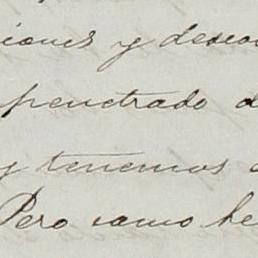 iones y deseo
penetrado d
y tenemos
Pero como he